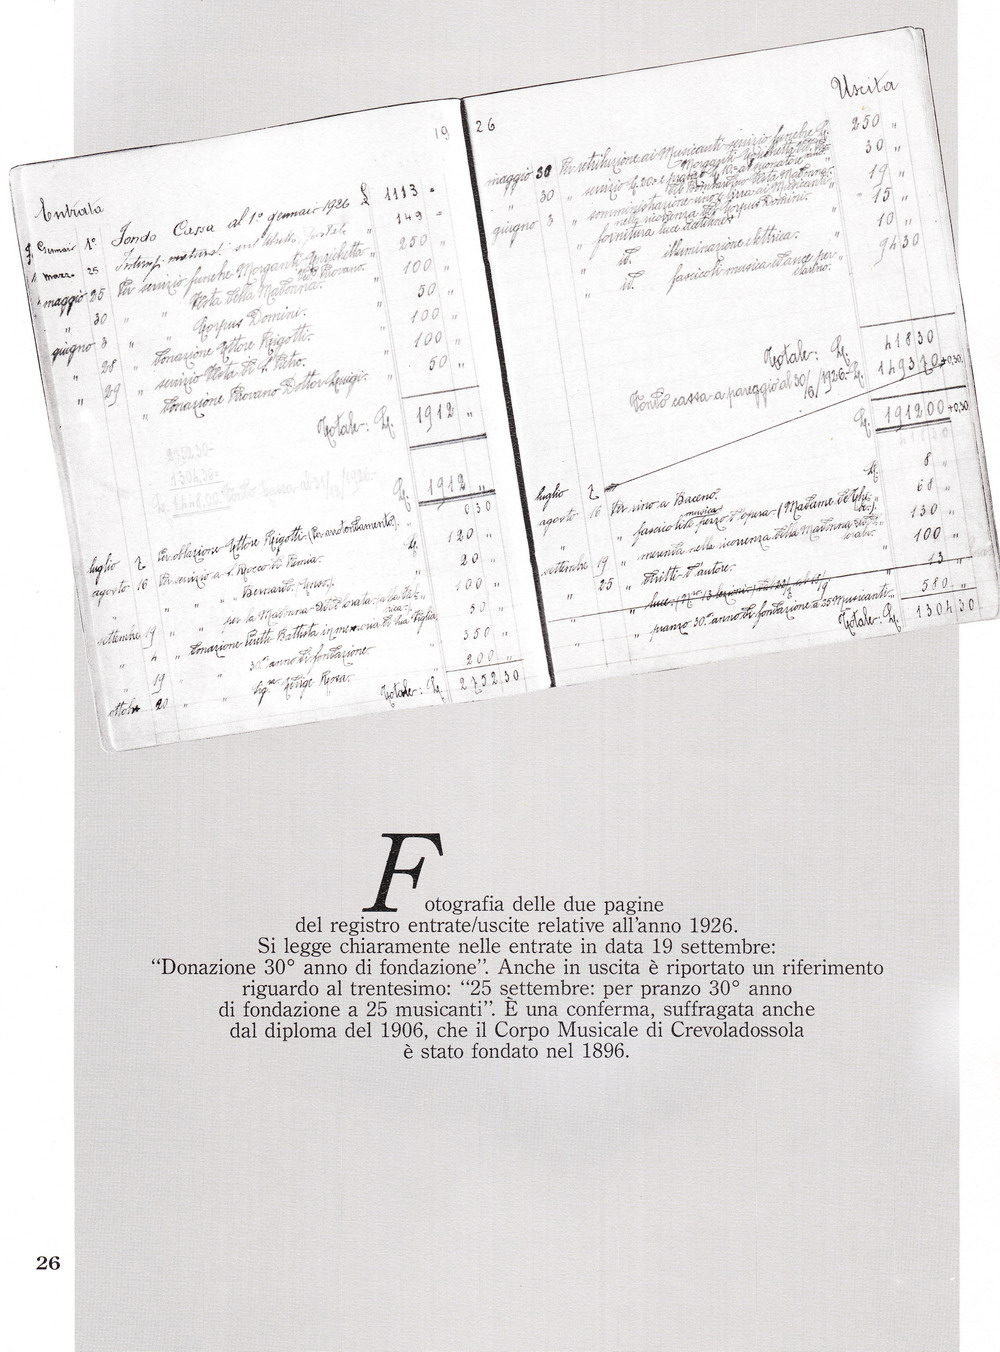 19
Entrata
Gennaio 1° Fondo Cassa al 1° gennaio 1926 £ 1113 =
marzo 25 149 =
maggio 25 Per servizio funebre Morganti Enrichetta 250 "
" 30 " " Festa della Madonna. 100 "
giugno 3 " " Corpus Domini. 50 "
" 28 " Donazione Ettore Rigotti. 100 "
" 29 " servizio Festa di S. Pietro. 100 "
" Donazione Provano Dottor Luigi. 50 "
Totale: L. 1912 "
2752.30-
1304.30=
Fondo cassa al 31/12/1926-
L. 1912 "
0 30
luglio 2 Per oblazione Ettore Rigotti (Per arrotondamento). 120 "
agosto 16 Per servizio a S. Rocco di Premia. L. 20 "
" " " Bernardo 100 "
settembre 19 " " per la Madonna Addolorata. 50 "
" 4 " Donazione Battista in memoria di sua figlia. 350 "
" 19 " " 30° anno di fondazione 200 "
ottobre 20 " " Sig.
Totale: L. 2752 30
26
Uscita
maggio 30 Per retribuzione ai Musicanti servizio funebre L. 250 "
" 30 " servizio 30 "
giugno 3 " somministrazione vino e birra ai Musicanti 19 "
nella ricorrenza del Corpus Domini.
" fornitura luce 15 "
" id. illuminazione elettrica. 10 "
" id. fascicoli musica 94 30
Totale: L. 418 30
Fondo cassa a pareggio al 30/6/1926- L. 1493 70 +0,30
L. 1912 00 +0,30
418 30
luglio 2 Per vino a Baceno. L. 8 "
agosto 16 " fascicolo musica pezzo d'opera (Madame 68 "
" " merenda nella ricorrenza della Madonna 130 "
settembre 19 " diritti d'autore. 100 "
" 25 " luce 13 "
" pranzo 30° anno di fondazione a 25 Musicanti 580 "
Totale: L. 1304 30
Fotografia delle due pagine
del registro entrate/uscite relative all'anno 1926.
Si legge chiaramente nelle entrate in data 19 settembre:
“Donazione 30° anno di fondazione”. Anche in uscita è riportato un riferimento
riguardo al trentesimo: “25 settembre: per pranzo 30° anno
di fondazione a 25 musicanti”. È una conferma, suffragata anche
dal diploma del 1906, che il Corpo Musicale di Crevoladossola
è stato fondato nel 1896.
26